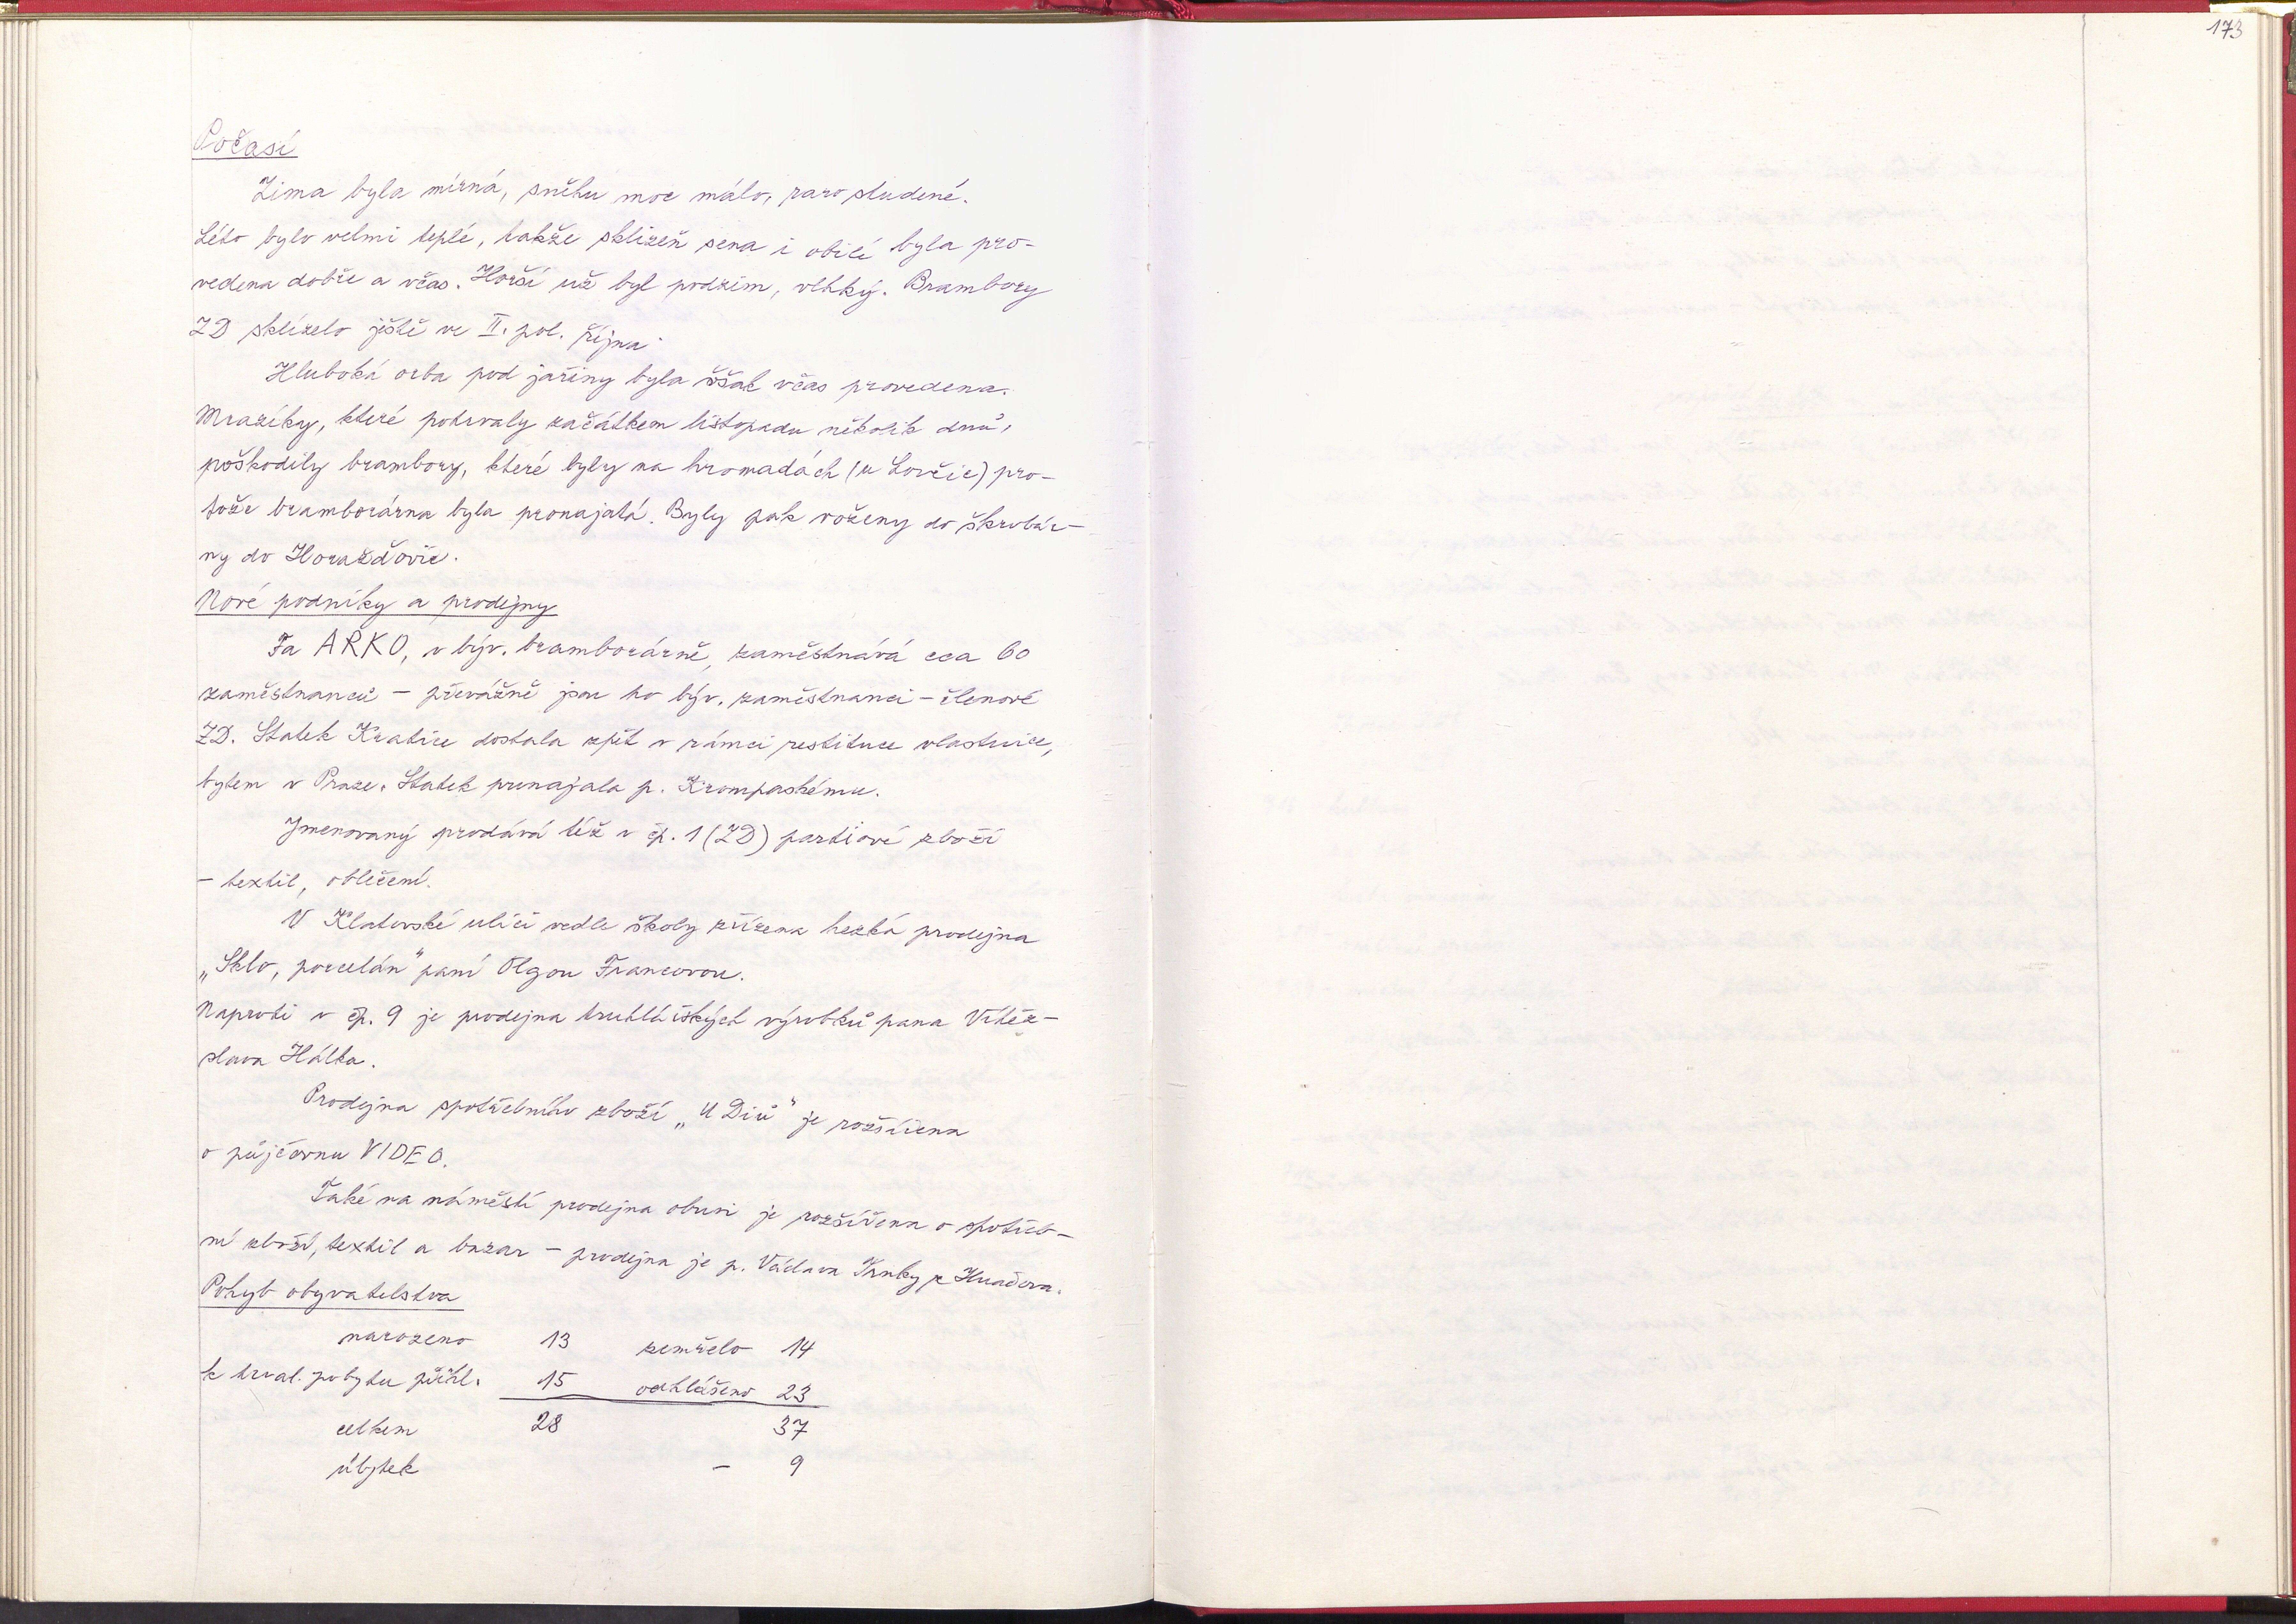 173
Počasí
Zima byla mírná, sněhu moc málo, jaro studené.
Léto bylo velmi teplé, takže sklizeň sena i obilí byla pro-
vedena dobře a včas. Horší už byl podzim, vlhký. Brambory
ZD sklízelo ještě ve II. pol. října.
Hluboká orba pod jařiny byla však včas provedena.
Mrazíky, které potrvaly začátkem listopadu několik dnů,
poškodily brambory, které byly na hromadách (u Lovčic) pro-
tože bramborárna byla pronajatá. Byly pak voženy do škrobár-
ny do Horažďovic.
Nové podniky a prodejny
Fa ARKO, v býv. bramborárně, zaměstnává cca 60
zaměstnanců - převážně jsou to býv. zaměstnanci - členové
ZD. Statek Kratice dostala zpět v rámci restituce vlastnice,
bytem v Praze. Statek pronajala p. Krompaskému.
Jmenovaný prodává též v čp. 1 (ZD) partiové zboží
- textil, oblečení.
V Klatovské ulici vedle školy zřízena hezká prodejna
„Sklo, porcelán" paní Olgou Francovou.
Naproti v čp. 9 je prodejna truhlářských výrobků pana Vítěz-
slava Hálka.
Prodejna spotřebního zboží „U Diů" je rozšířena
o půjčovnu VIDEO.
Také na náměstí prodejna obuvi je rozšířena o spotřeb-
ní zboží, textil a bazar - prodejna je p. Václava z Hnačova.
Pohyb obyvatelstva
narozeno 13 zemřelo 14
k trval. pobytu přihl. 15 odhlášeno 23
celkem 28 37
úbytek - 9